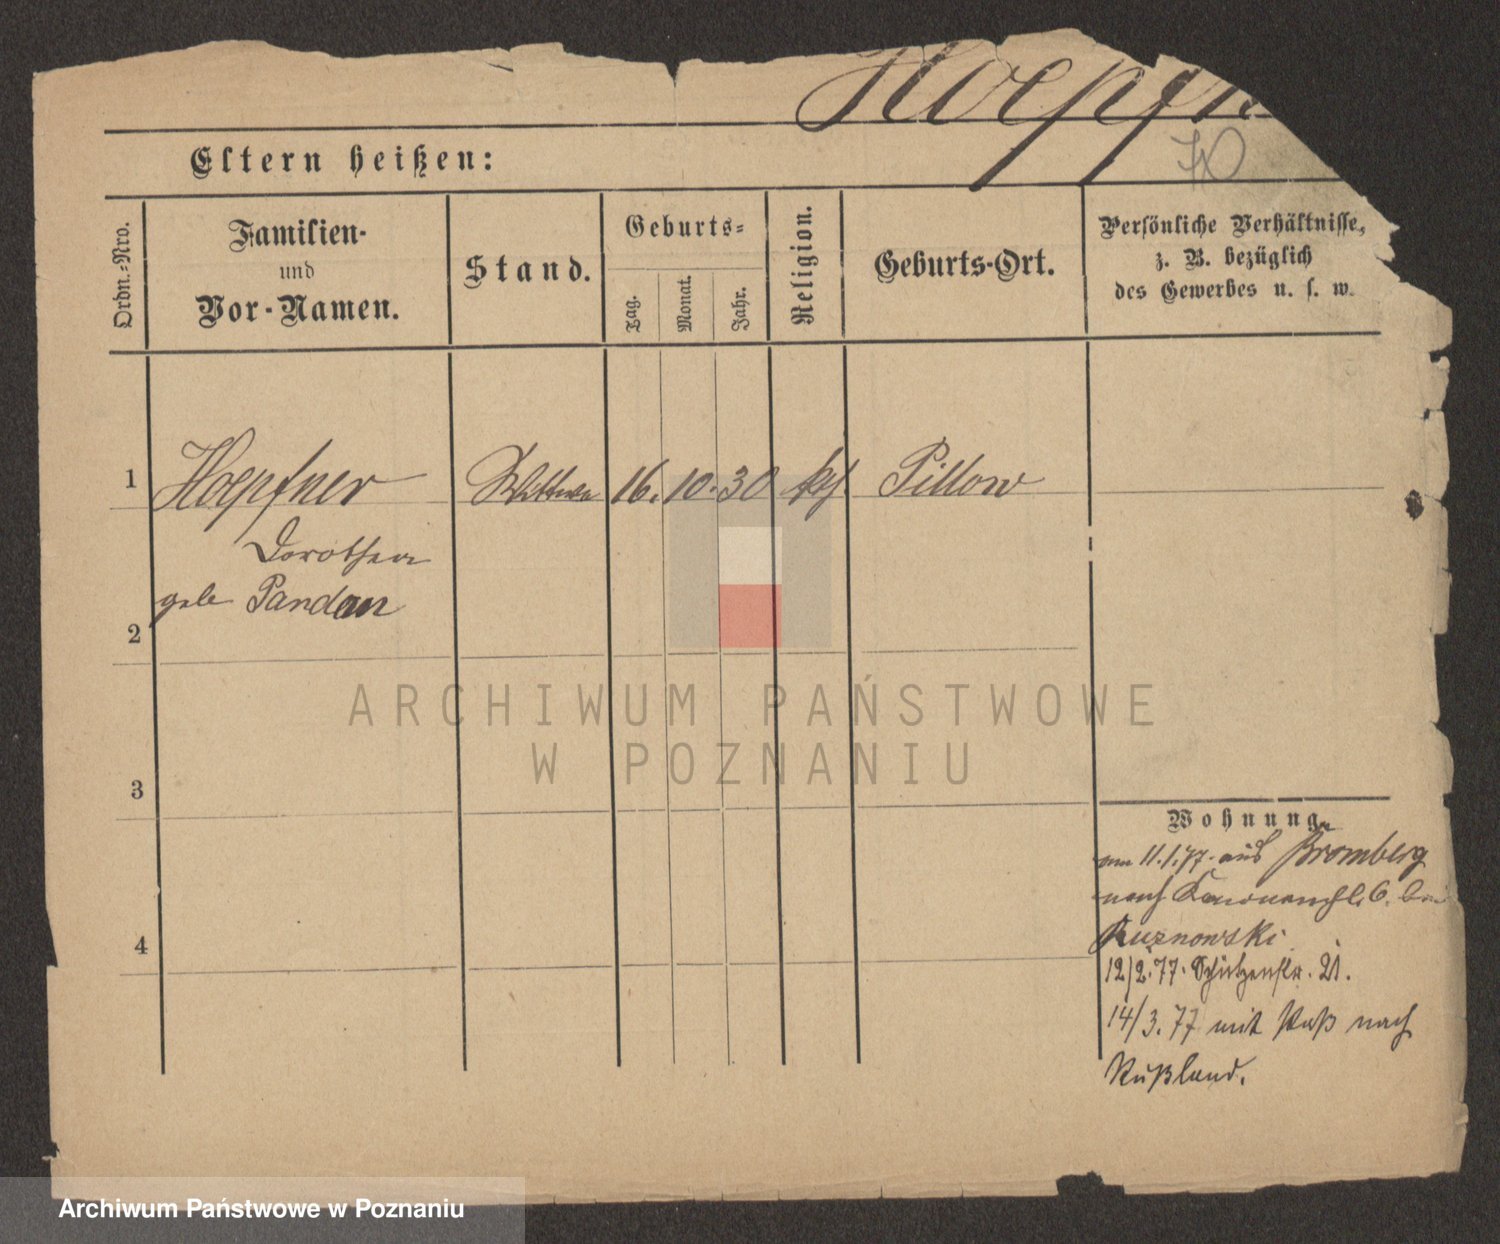 Hoepfn
Eltern heißen:
Ordn.-Nro.
Familien-
und
Vor-Namen.
Stand.
Geburts-
Tag.
Monat.
Jahr.
Religion.
Geburts-Ort.
Persönliche Verhältnisse,
z. B. bezüglich
des Gewerbes u. s. w.
1
Hoepfner Wittwe 16. 10. 30 Pillow
Dorothea
geb Pandau
2
3
4
Wohnung.
am 11.1.77. aus Bromberg
nach 6. bei
Kuznowski
12/2.77. Schützenstr. 21.
14/3.77 mit Paß nach
Rußland.
ARCHIWUM PAŃSTWOWE
W POZNANIU
Archiwum Państwowe w Poznaniu